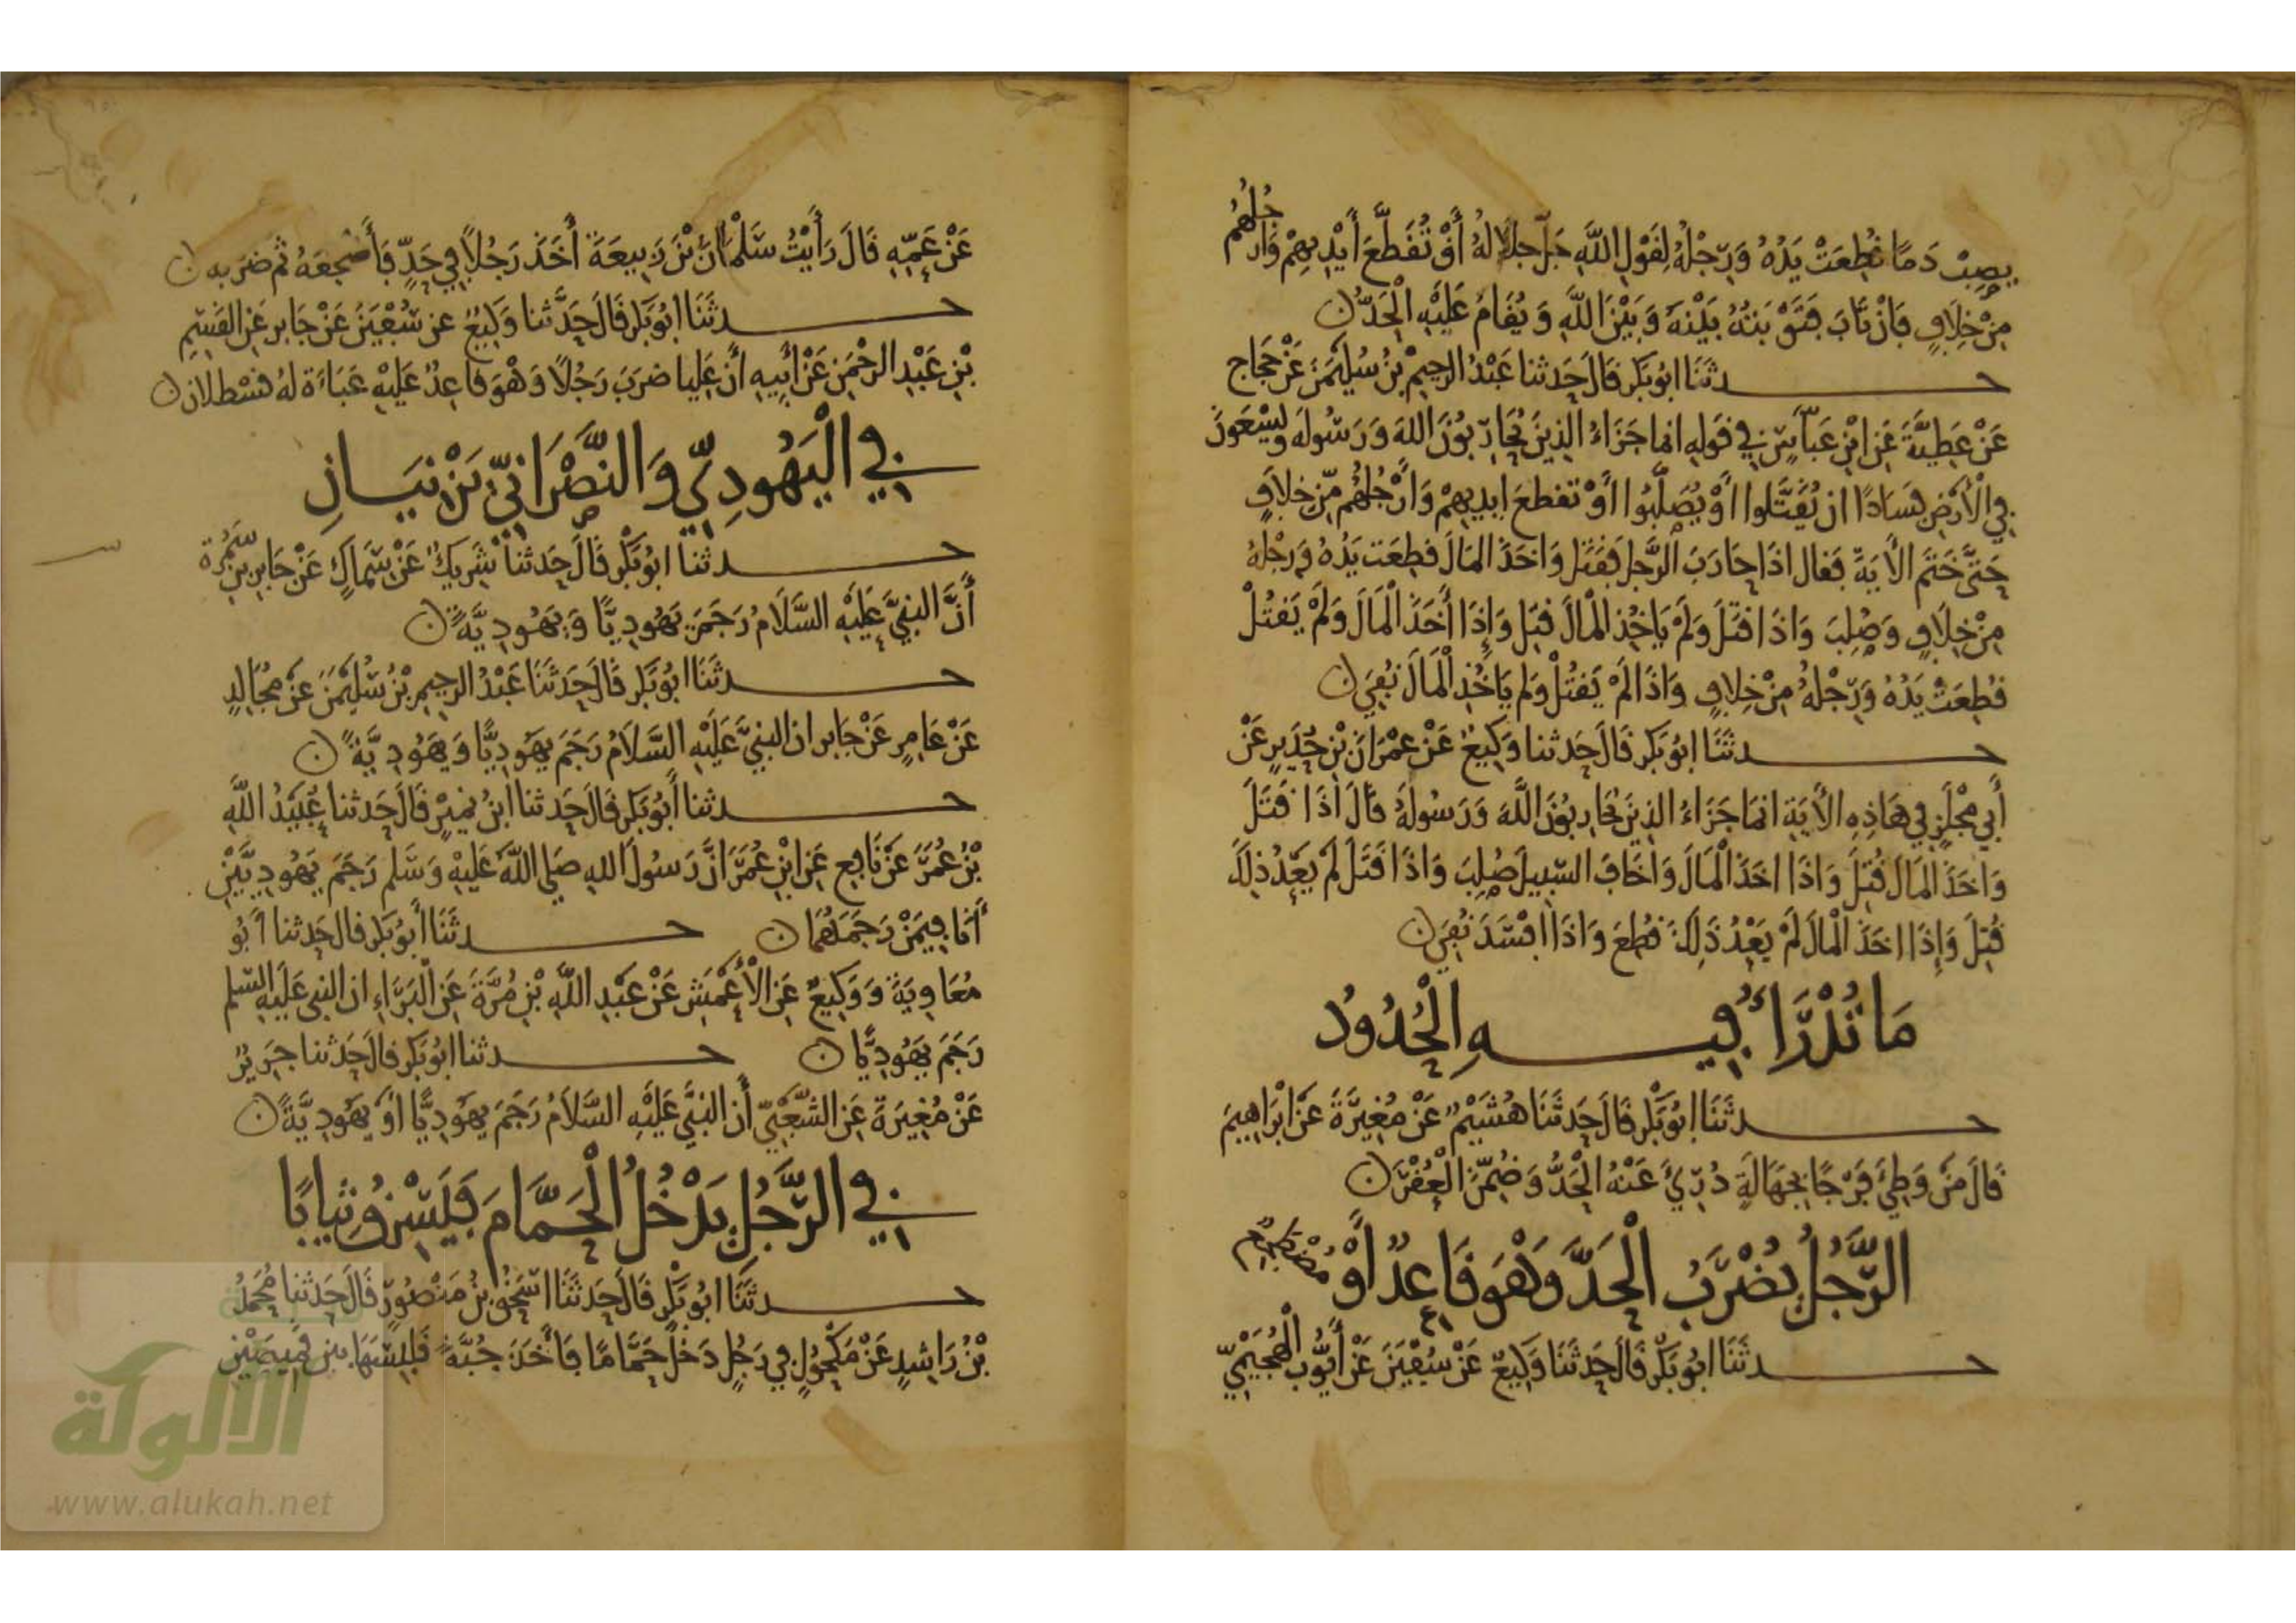 يصب دما قُطِعَتْ يَدُهُ وَرِجْلُهُ لِقَوْلِ اللَّهِ جَلَّ جلالهُ أَوْ تُقَطَّعَ أَيْدِيهِمْ وَأَرْجُلُهُمْ
مِنْ خِلَافٍ فَإِنْ تَابَ فَتَوْبَتُهُ بَيْنَهُ وَبَيْنَ اللَّهِ وَيُقَامُ عَلَيْهِ الْحَدُّ
حدثَنَا ابُو بَكر قَالَ حَدثنا عَبْدُ الرحِيمْ بْنُ سُلَيْمَنَ عَنْ حَجَّاج
عَنْ عَطِيَّةَ عَنِ ابْنِ عَبَّاسٍ فِي قَولِهِ انما جَزَاءُ الذِينَ يُحَارِبُونَ اللهَ وَرَسُولَه وَيَسْعَوْنَ
فِي الْأَرْضِ فَسَادًا ان يُقَتَّلوا أَوْ يُصَلَّبُوا أَوْ تقطعَ ايديهِمْ وَأَرْجُلُهُم مِّنْ خِلَافٍ
حَتَّى خَتَمَ الْأيَةَ فَقال اذَا حَارَبَ الرَّجل فَقَتَل وَاخَذَ المَالَ قطِعَت يَدُهُ وَرِجْلهُ
مِنْ خِلَافٍ وَصُلِبَ وَاذَا قتَلَ وَلَمْ يَاخُذِ المْالَ قتِل وَإِذَا أَخَذَ الْمَالَ وَلَمْ يَقتُلْ
قُطِعَتْ يَدُهُ وَرِجْلهُ مِنْ خِلافٍ وَاذَا لَمْ يَقتُلْ وَلم يَاخُذِ الْمَالَ نُفِيَ
حدثَنَا ابُو بَكر قَالَ حَدثنا وَكِيعٌ عَنْ عِمْرَانَ بْنِ حُدَيرٍ عَنْ
أَبِي مِجْلَزٍ فِي هَاذِهِ الأَيَةِ انمَا جَزَاءُ الذِينَ يُحَارِبُونَ اللَّهَ وَرَسُولَهُ قَالَ اذَا قَتَلَ
وَاخَذَ المَالَ قُتِلَ وَاذَا اخَذَ الْمَالَ وَاخَافَ السَّبِيلَ صُلِبَ وَاذَا قَتَلَ لَمْ يَعْدُ ذلِكَ
قُتِلَ وَإِذَا اخَذَ الْمالَ لَمْ يَعْدُ ذَلِكَ قُطِعَ وَاذَا افْسَدَ نُفِيَ
مَا تُدْرَأُ فِيهِ الْحُدُودُ
حدثَنَا ابُو بَكْر قَالَ حَدثَنَا هُشَيْمٌ عَنْ مُغِيرَةَ عَنْ ابْرَاهِيمَ
قَالَ مَنْ وَطِئَ فَرْجًا بِجَهَالَةٍ دُرِئَ عَنْهُ الْحَدُّ وَضُمِّنَ الْعُقْرَ
الرَّجُلُ يُضْرَبُ الْحَدَّ وَهْوَ قَاعِدٌ أَوْ مُضْطَجِعٌ
حدثَنَا ابُو بَكْر قَالَ حَدثَنَا وَكِيعٌ عَنْ سُفْيَنَ عَنْ أَيُّوبَ الْهُجَيْمِيِّ
عَنْ عَمِّهِ قَالَ رَأَيْتُ سَلْمَانَ بْنَ رَبِيعَةَ أَخَذَ رَجُلًا فِي حَدٍّ فَأَضجعَهُ ثم ضرَبه
حدثَنَا ابُو بَكر قَالَ حَدَّثنا وَكِيعٌ عن سُفْيَنَ عَنْ جَابر عَنِ القسِمِ
بْنِ عَبْدِ الرحْمَنِ عَنْ أَبِيهِ أَنَّ عَلِيا ضرَبَ رَجُلًا وَهْوَ قاعِدٌ عَلَيْهِ عَبَاءَة لهُ قسْطلان
فِي الْيَهُودِيِّ وَالنَّصْرَانِيِّ يَزْنِيَانِ
حدثنا ابُو بَكْر قَالَ حَدثنا شَرِيكٌ عَنْ سِمَاكٍ عَنْ جَابِرِ بْنِ سَمُرَة
أَنَّ النبيَّ عَلَيْهِ السَّلَامُ رَجَمَ يَهُودِيًّا وَيَهُودِيَّةً
حدثَنَا ابُو بَكر قَالَ حَدثَنَا عَبْدُ الرحِيمِ بْنُ سُلَيْمَنَ عَنْ مُجَالِدٍ
عَنْ عَامِرٍ عَنْ جَابر ان النبيَّ عَلَيْهِ السَّلَامُ رَجَمَ يهَودِيًّا وَيَهُودِيَّةً
حدثنا أَبُو بَكر قَالَ حَدثنا ابنُ نميْرٍ قَالَ حَدثنا عُبَيْدُ اللَّهِ
بْنُ عُمَرَ عَنْ نَافِعٍ عَنِ ابْنِ عُمَرَ انَّ رَسُولَ اللهِ صَلى اللَّهُ عَلَيْهِ وَسَلم رَجَمَ يَهُودِيَّيْنِ
أَنَا فِيمَنْ رَجَمَهُمَا حدثَنَا أَبُو بَكر قال حَدثنا أَبُو
مُعَاوِيَةَ وَوَكِيعٌ عَنِ الْأَعْمَشِ عَنْ عَبْدِ اللَّهِ بْنِ مُرَّةَ عَنِ الْبَرَاءِ ان النبي عَلَيْهِ السَّلم
رَجَمَ يَهُودِيًّا حدثنا ابُو بَكر قالَ حَدثنا جَرِيرٌ
عَنْ مُغِيرَةَ عَنِ الشَّعْبِيِّ أَن النبيَّ عَلَيْهِ السَّلَامُ رَجَمَ يهَودِيًّا أَوْ يَهُودِيَّةً
فِي الرَّجُلِ يَدْخُلُ الْحَمَّامَ فَيَسْرِقُ ثِيَابًا
حدثَنَا ابُو بَكْر قَالَ حَدثَنَا اسْحَقُ بْنُ مَنْصُورٍ قَالَ حَدثنَا مُحَمدُ
بْنُ رَاشِدٍ عَنْ مَكْحُولٍ فِي رَجُلٍ دَخَلَ حَمَّامًا فَأَخَذَ جُبَّةً فَلَبِسَهَا بين قَمِيصَيْنِ
الألوكة
www.alukah.net